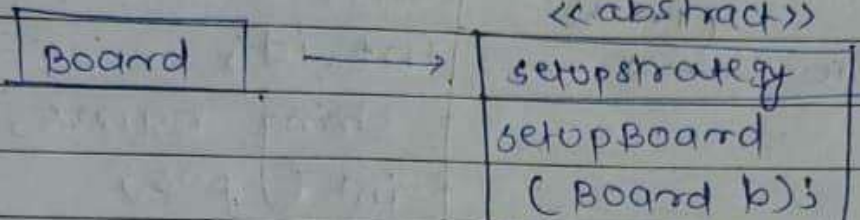 <<abstract>>
Board
setupstrategy
setupBoard
(Board b);